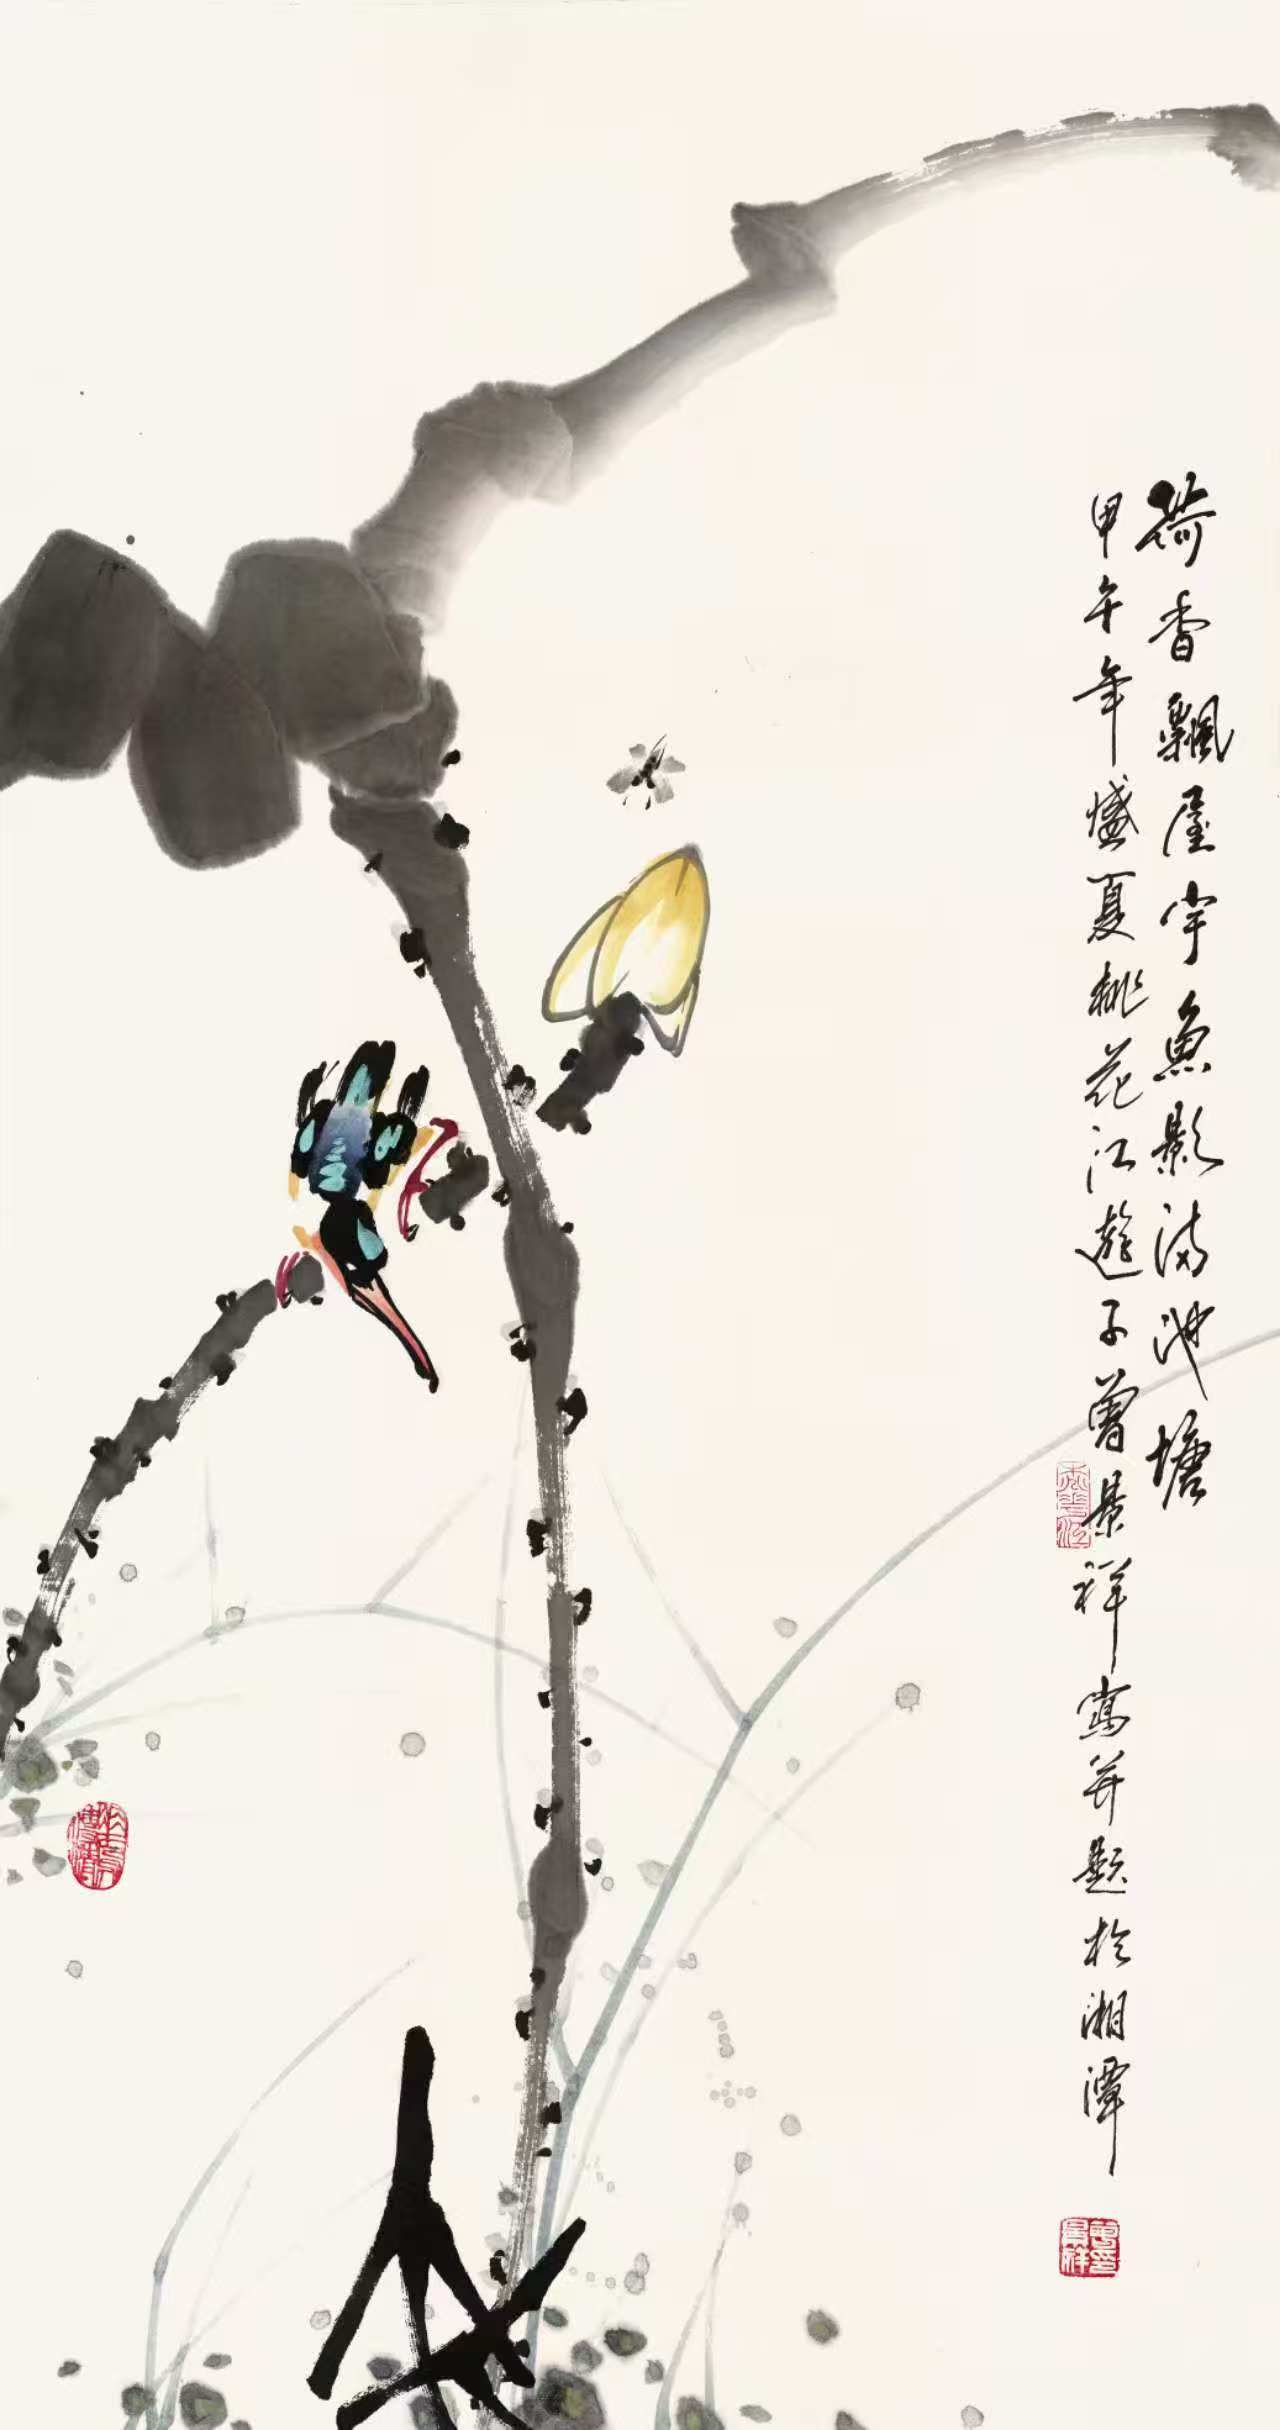 荷香飄屋宇魚影滿池塘
甲午年盛夏桃花江遊子曾景祥寫并題於湘潭